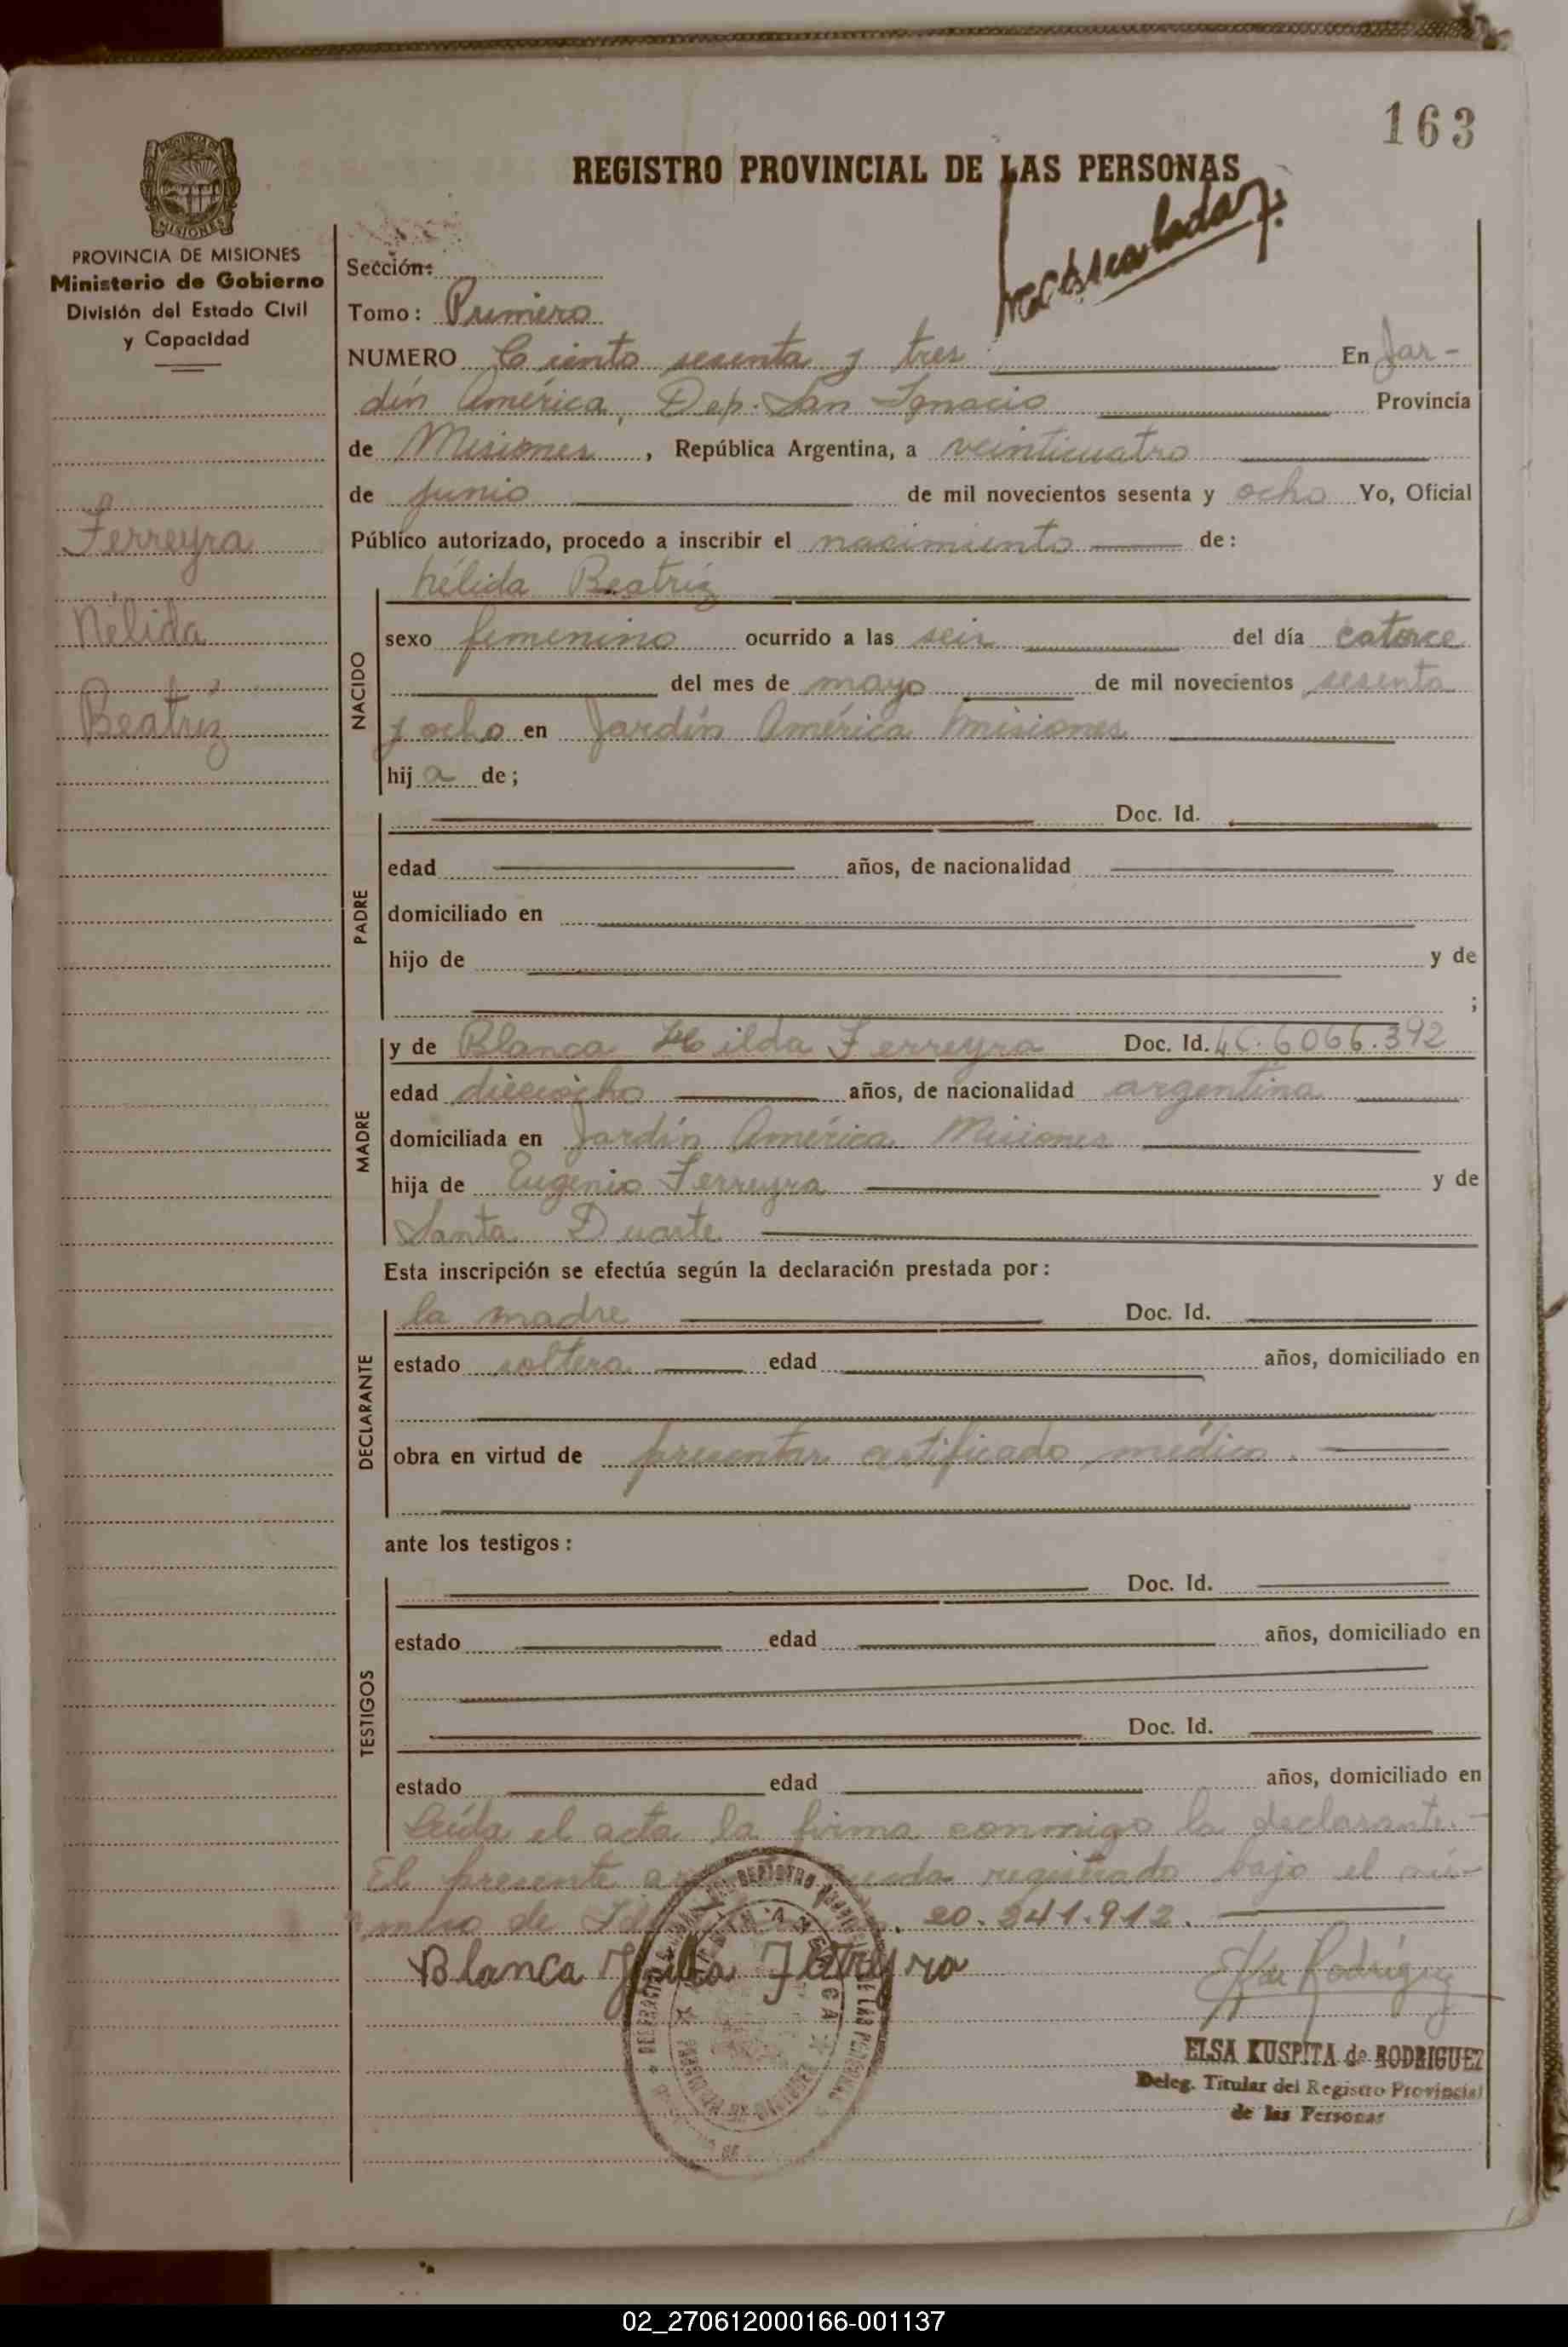 163
REGISTRO PROVINCIAL DE LAS PERSONAS
PROVINCIA DE MISIONES
Ministerio de Gobierno
División del Estado Civil
y Capacidad
Ferreyra
Nélida
Beatriz
Sección:
Tomo: Primero
NUMERO Ciento sesenta y tres En Jar-
dín América, Dep. San Ignacio Provincia
de Misiones, República Argentina, a veinticuatro
de junio de mil novecientos sesenta y ocho Yo, Oficial
Público autorizado, procedo a inscribir el nacimiento de:
Nélida Beatriz
NACIDO
sexo femenino ocurrido a las seis del día catorce
del mes de mayo de mil novecientos sesenta
y ocho en Jardín América Misiones
hija de;
PADRE
Doc. Id.
edad años, de nacionalidad
domiciliado en
hijo de y de
;
MADRE
y de Blanca Hilda Ferreyra Doc. Id. 6066.392
edad dieciocho años, de nacionalidad argentina
domiciliada en Jardín América Misiones
hija de Eugenio Ferreyra y de
Santa Duarte
Esta inscripción se efectúa según la declaración prestada por:
DECLARANTE
la madre Doc. Id.
estado soltera edad años, domiciliado en
obra en virtud de presentar certificado médico.
ante los testigos:
TESTIGOS
Doc. Id.
estado edad años, domiciliado en
Doc. Id.
estado edad años, domiciliado en
Leída el acta la firma conmigo la declarante.-
El presente queda registrado bajo el nú-
mero de 20.341.912.
Blanca Hilda Ferreyra
Rodriguez
ELSA KUSPITA de RODRIGUEZ
Deleg. Titular del Registro Provincial
de las Personas
02_270612000166-001137